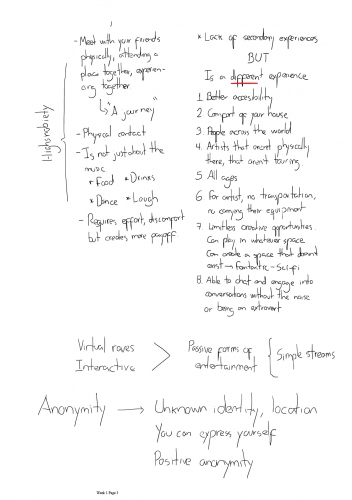 - Meet with your friends
physically, attending a
place together, experien-
cing together
↳ "A journey"
- Physical contact
- Is not just about the
music
* Food * Drinks
* Dance * Laugh
- Requires effort, discomfort
but creates more payoff
* Lack of secondary experiences
BUT
Is a different experience
1. Better accesibility
2. Comfort of your house
3. People across the world
4. Artists that arent physically
there, that arent touring.
5. All ages
6. For artist, no transportation,
no carrying their equipment
7. Limitless creative opportunities.
Can play in whatever space
Can create a space that doesnt
exist → Fantastic - Sci-fi
8. Able to chat and engage into
conversations without the noise
or being an extrovert
Virtual raves > Passive forms of { Simple streams
Interactive entertainment
Anonymity → Unknown identity, location
You can express yourself
Positive anonymity
Week 1 Page 1